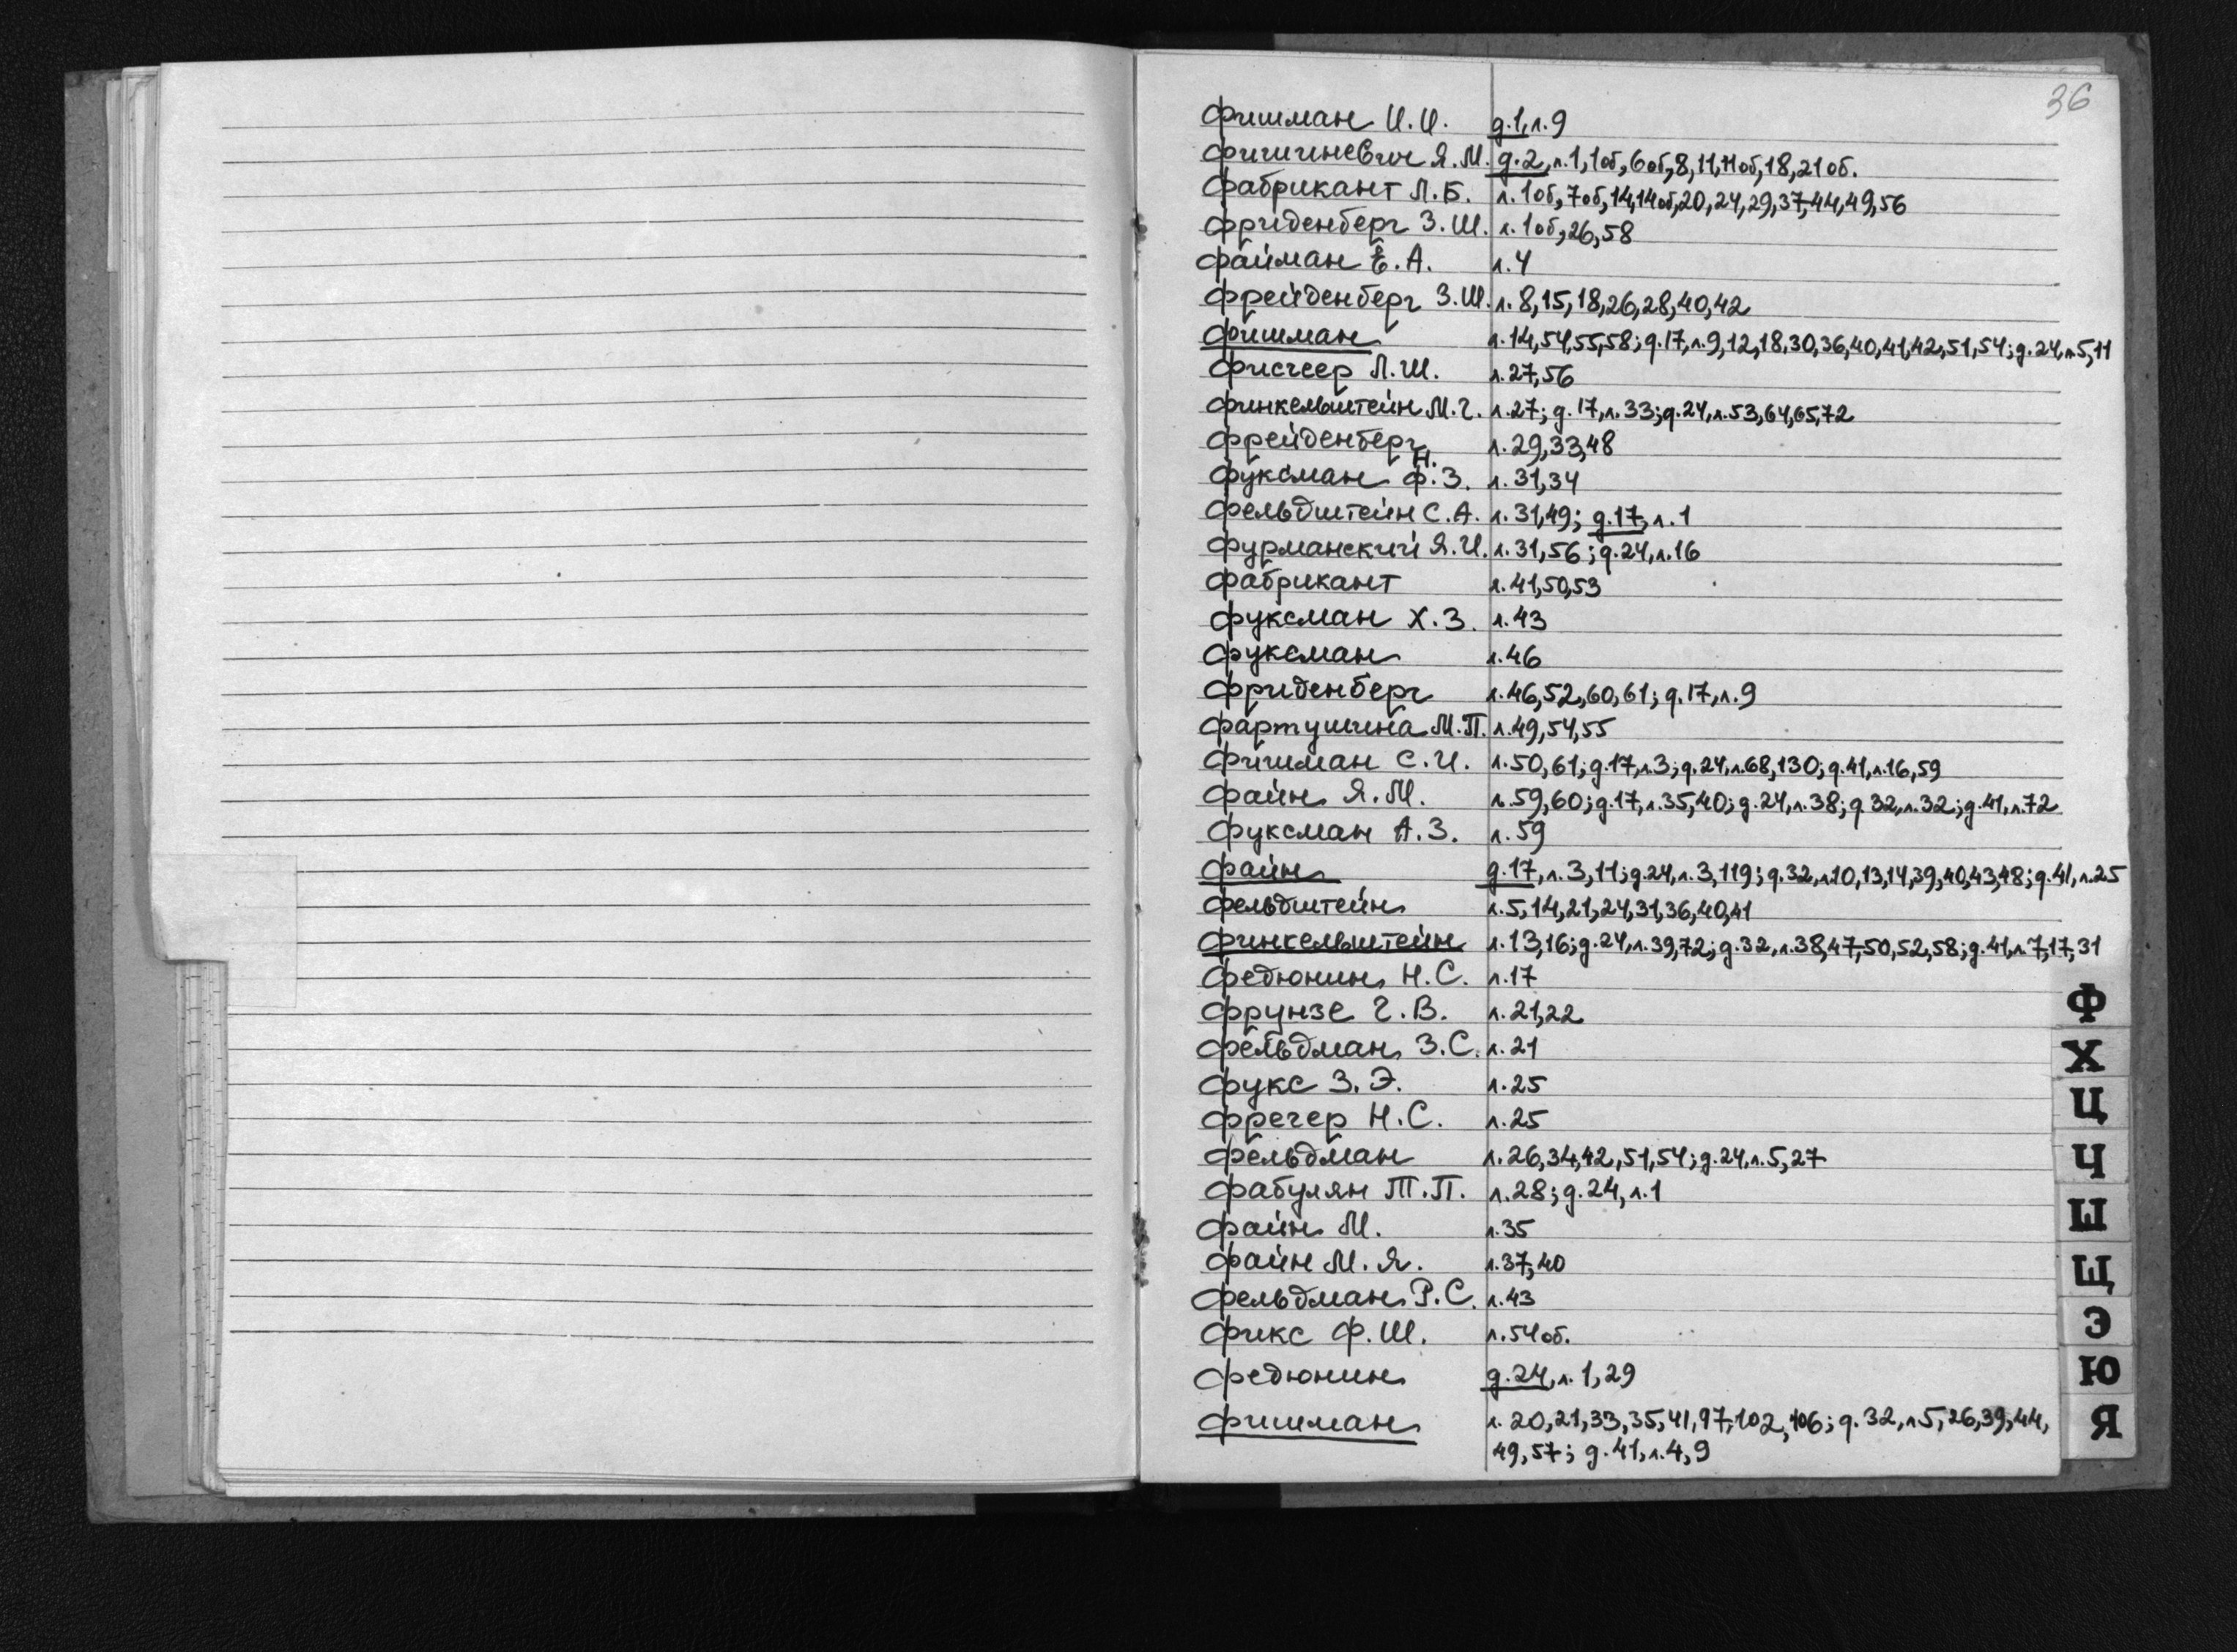 36
Фишман И.И. д.1, л.9
Фишиневич Я.М. д.2, л.1,1об,6об,8,11,11об,18,21об.
Фабрикант Л.Б. л.1об,7об,14,14об,20,24,29,37,44,49,56
Фриденберг З.Ш. л.1об,26,58
Файман Е.А. л.4
Фрейденберг З.Ш. л.8,15,18,26,28,40,42
Фишман л.14,54,55,58; д.17, л.9,12,18,30,36,40,41,42,51,54; д.24, л.5,11
Фисгеер Л.Ш. л.27,56
Финкельштейн М.Г. л.27; д.17, л.33; д.24, л.53,64,65,72
Фрейденберг л.29,33,48
Н.
Фуксман Ф.З. л.31,34
Фельдштейн С.А. л.31,49; д.17, л.1
Фурманский Я.И. л.31,56; д.24, л.16
Фабрикант л.41,50,53
Фуксман Х.З. л.43
Фуксман л.46
Фриденберг л.46,52,60,61; д.17, л.9
Фартушина М.П. л.49,54,55
Фишман С.И. л.50,61; д.17, л.3; д.24, л.68,130; д.41, л.16,59
Файн Я.М. л.59,60; д.17, л.35,40; д.24, л.38; д.32, л.32; д.41, л.72
Фуксман А.З. л.59
Файн д.17, л.3,11; д.24, л.3,119; д.32, л.10,13,14,39,40,43,48; д.41, л.25
Фельдштейн л.5,14,21,24,31,36,40,41
Финкельштейн л.13,16; д.24, л.39,72; д.32, л.38,47,50,52,58; д.41, л.7,17,31
Федюнин Н.С. л.17
Фрунзе Г.В. л.21,22
Фельдман З.С. л.21
Фукс З.Э. л.25
Фрегер Н.С. л.25
Фельдман л.26,34,42,51,54; д.24, л.5,27
Фабулян Т.П. л.28; д.24, л.1
Файн М. л.35
Файн М.Я. л.37,40
Фельдман Р.С. л.43
Фикс Ф.Ш. л.54об.
Федюнин д.24, л.1,29
Фишман л.20,21,33,35,41,97,102,106; д.32, л.5,26,39,44,
49,57; д.41, л.4,9
Ф
Х
Ц
Ч
Ш
Щ
Э
Ю
Я